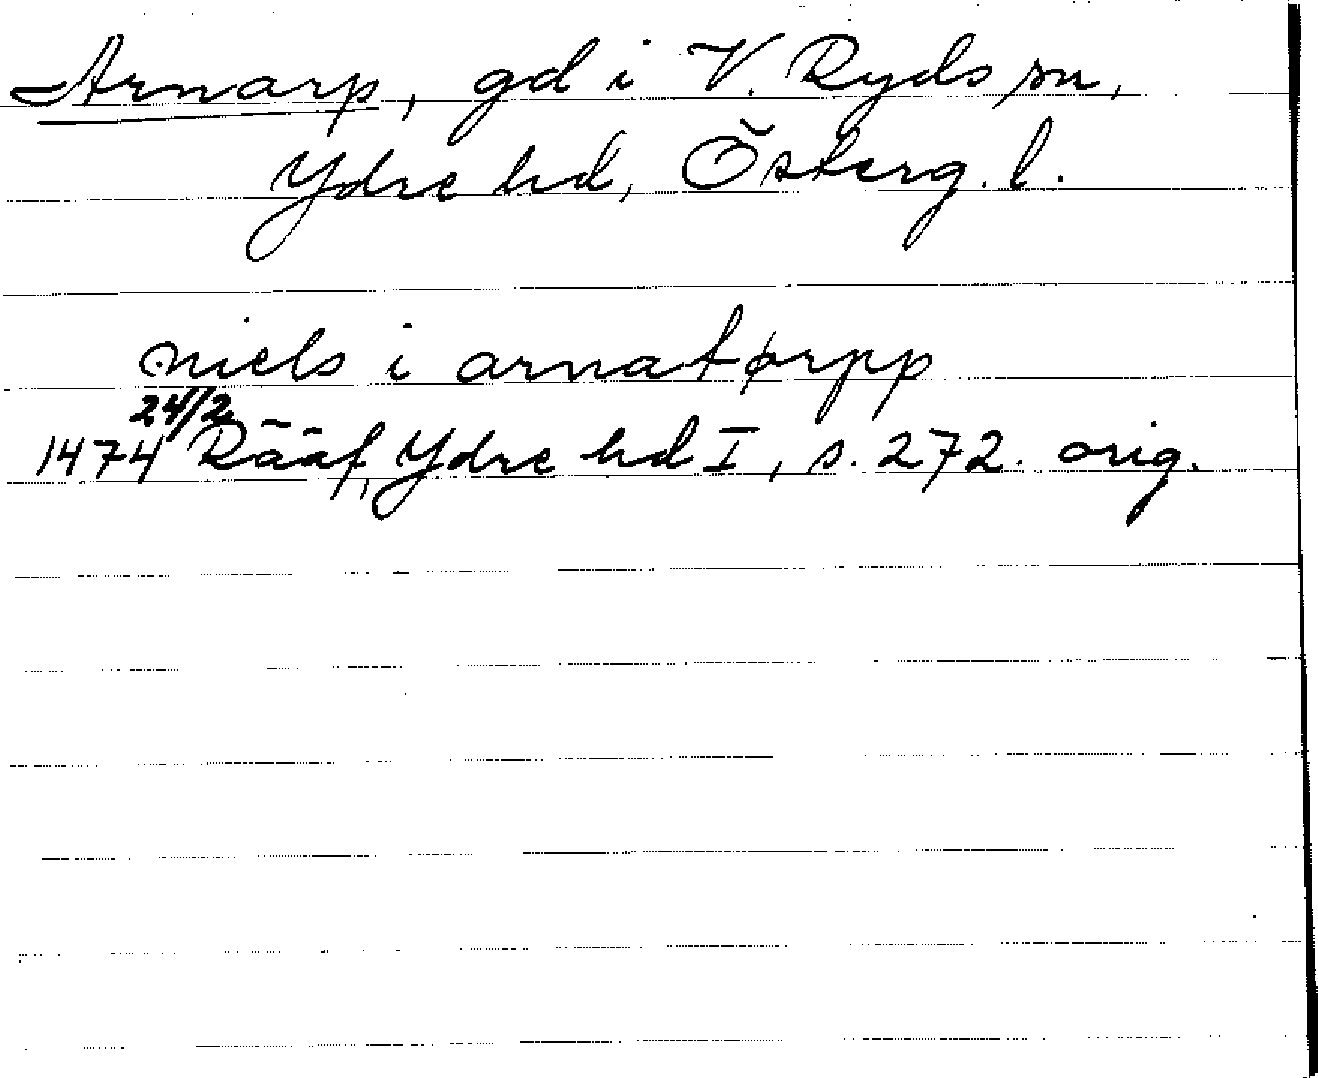 Arnarp, gd i V. Ryds sn,
Ydre hd, Österg. l.
niels i arnatørpp
24/2
1474 Rääf, Ydre hd I, s. 272. orig.